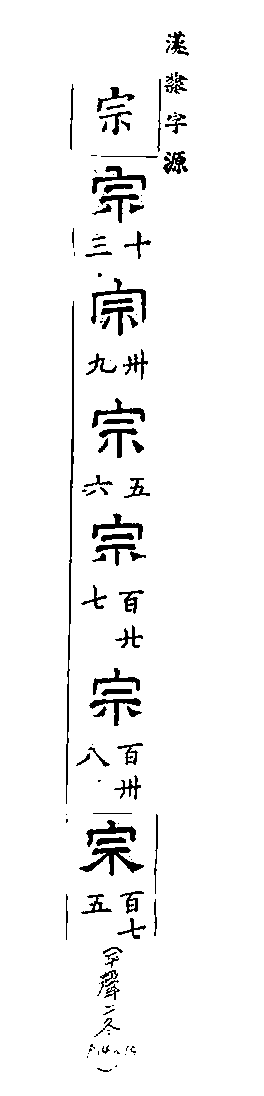 漢隸字源
宗
宗
十三
宗
卅九
宗
五六
宗
百廿七
宗
百卅八
宗
百七五
(平聲二冬
)